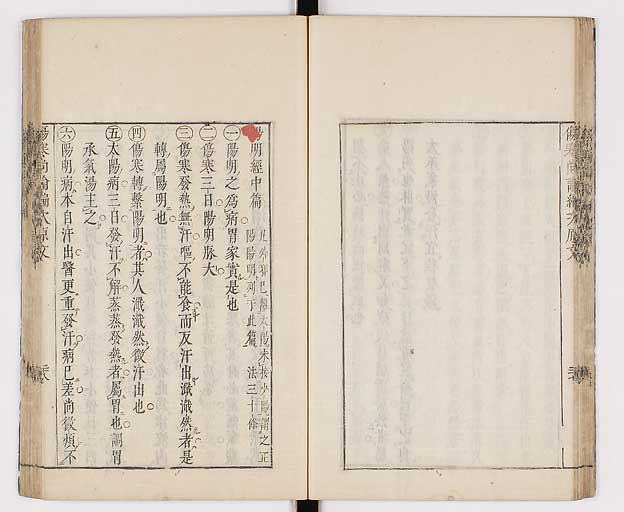 陽明經中篇
凡外邪已趨太陽未接少陽謂之正
陽陽明列于此篇 法三十條
㊀陽明之為病胃家實是也
㊁傷寒三日陽明脉大
㊂傷寒發熱無汗嘔不能食而反汗出濈濈然者是
轉屬陽明也
㊃傷寒轉繫陽明者其人濈濈然微汗出也
㊄太陽病三日發汗不解蒸蒸發熱者屬胃也調胃
承氣湯主之
㊅陽明病本自汗出醫更重發汗病已差尚微煩不